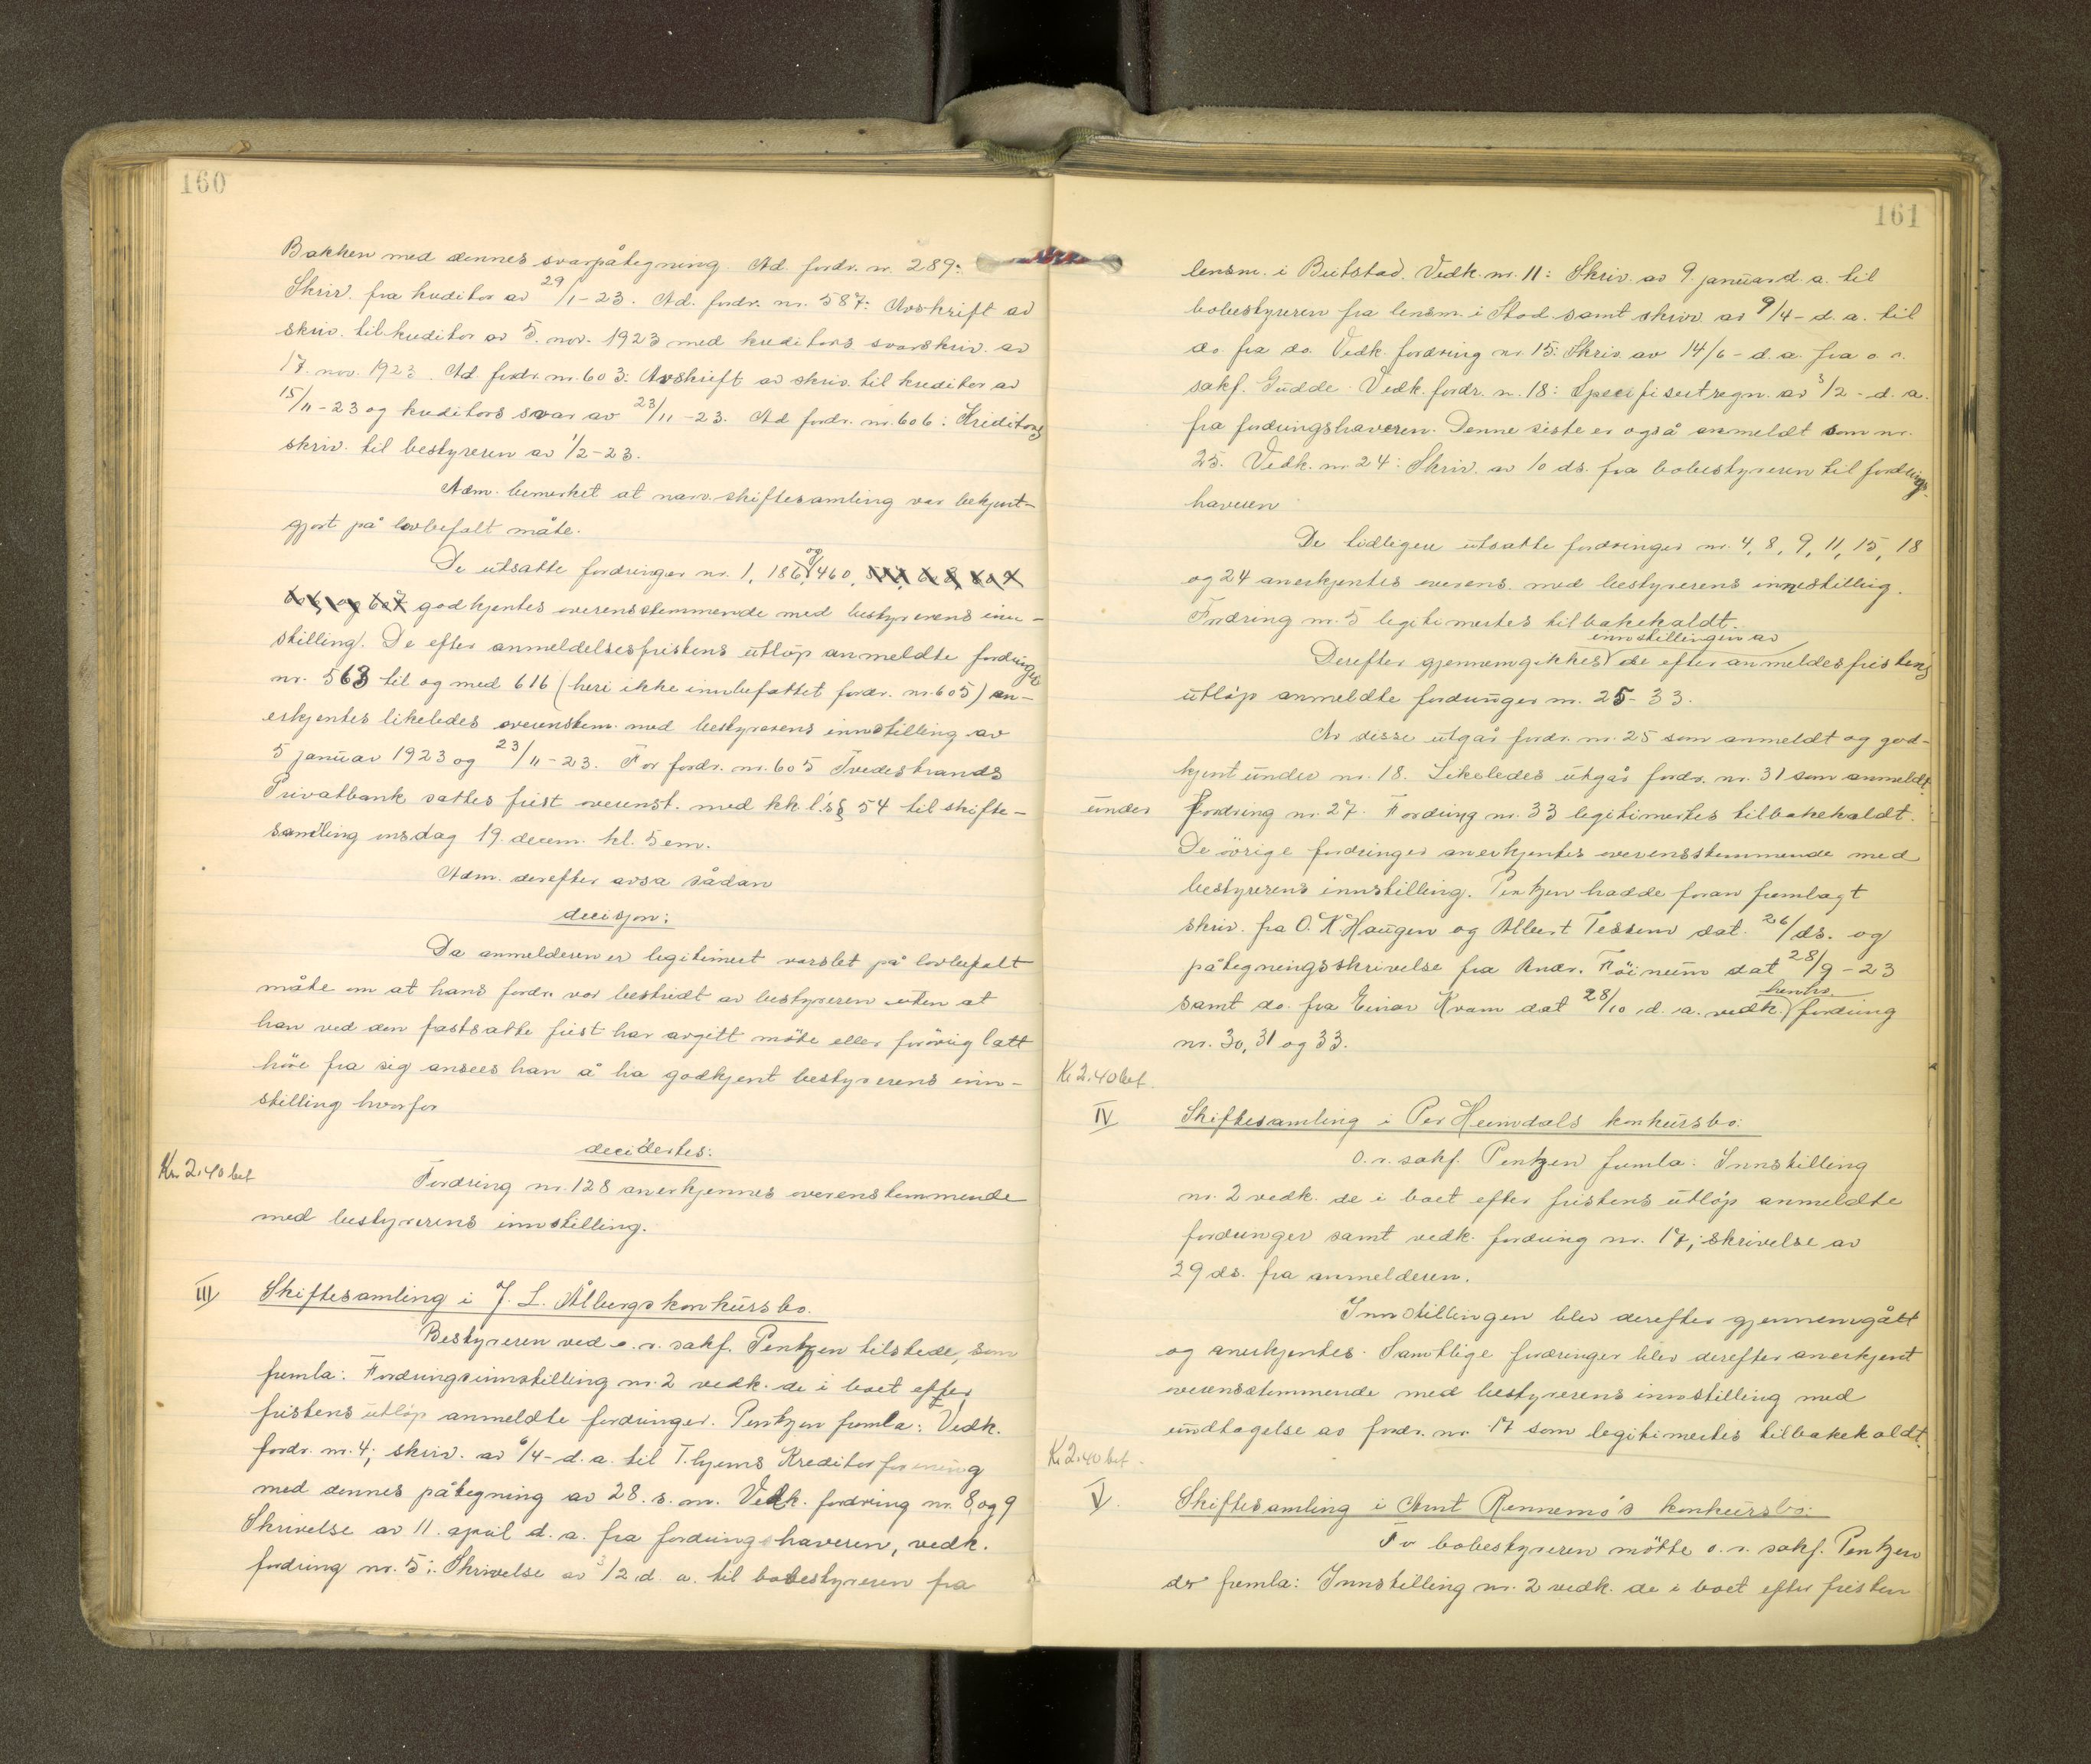 160
Bakken med dennes svarpåtegning. Ad. fordr. nr. 289:
Skriv. fra kreditor av 29/1-23. Ad. fordr. nr. 587: Avskrift av
skriv. til kreditor av 5. nov. 1923 med kreditors svarskriv. av
17. nov. 1923. Ad fordr. nr. 603: Avskrift av skriv. til kreditor av
15/11-23 og kreditors svar av 23/11-23. Ad fordr. nr. 606: Kreditors
skriv. til bestyreren av 1/2-23.
Adm. bemerket at nærv. skiftesamling var bekjent-
gjort på lovbefalt måte.
De utsatte fordringer nr. 1, 186 og 460,
godkjentes overensstemmende med bestyrerens inn-
stilling. De efter anmeldelsesfristens utløp anmeldte fordringer
nr. 563 til og med 616 (heri ikke innbefattet fordr. nr. 605) an-
erkjentes likeledes overenstem. med bestyrerens innstilling av
5 januar 1923 og 23/11-23. For fordr. nr. 605 Tvedestrands
Privatbank sattes frist overenst. med kk.l.'s § 54 til skifte-
samling onsdag 19. decem. kl. 5 em.
Adm. derefter avsa sådan
decisjon:
Da anmelderen er legitimert varslet på lovbefalt
måte om at hans fordr. var bestridt av bestyreren uten at
han ved den fastsatte frist har avgitt møte eller forøvrig latt
høre fra sig ansees han å ha godkjent bestyrerens inn-
stilling hvorfor
decidertes:
Kr. 2.40 bet
Fordring nr. 128 anerkjennes overenstemmende
med bestyrerens innstilling.
III Skiftesamling i J. L. Ålbergs konkursbo.
Bestyreren ved o.r. sakf. Pentzen tilstede, som
fremla: Fordringsinnstilling nr. 2 vedk. de i boet efter
fristens utløp anmeldte fordringer. Pentzen fremla: Vedk.
fordr. nr. 4; skriv. av 6/4-d.a. til T.hjems Kreditorforening
med dennes påtegning av 28. s.m. Vedk. fordring nr. 8 og 9
Skrivelse av 11. april d.a. fra fordringshaveren, vedk.
fordring nr. 5: Skrivelse av 3/2 d.a. til bobestyreren fra
161
lensm. i Beitstad. Vedk. nr. 11: Skriv. av 9. januar d.a. til
bobestyreren fra lensm. i Stod samt skriv av 9/4-d.a. til
do. fra do. Vedk. fordring nr. 15: Skriv. av 14/6-d.a. fra o.r.
sakf. Gudde. Vedk. fordr. nr. 18: Specifisert regn. av 3/2-d.a.
fra fordringshaveren. Denne siste er også anmeldt som nr.
25. Vedk. nr. 24: Skriv. av 10 ds. fra bobestyreren til fordrings-
haveren.
De tidligere utsatte fordringer nr. 4, 8, 9, 11, 15, 18
og 24 anerkjentes overens. med bestyrerens innstilling.
Fordring nr. 5 legitimertes tilbakekaldt.
innstillingen av
Derefter gjennemgikkes de efter anmeldesfristens
utløp anmeldte fordringer nr. 25-33.
Av disse utgår fordr. nr. 25 som anmeldt og god-
kjent under nr. 18. Likeledes utgår fordr. nr. 31 som anmeldt
under fordring nr. 27. Fordring nr. 33 legitimertes tilbakekaldt.
De øvrige fordringer anerkjentes overensstemmende med
bestyrerens innstilling. Pentzen hadde foran fremlagt
skriv. fra O. K. Haugen og Albert Tessem dat. 26/ds. og
påtegningsskrivelse fra Andr. Føinum dat 28/9-23
henhv.
samt do. fra Einar Kvam dat 28/10 d.a. vedk. fordring
nr. 30, 31 og 33.
Kr 2.40 bet.
IV Skiftesamling i Per Heimdals konkursbo:
O.r. sakf. Pentzen fremla: Innstilling
nr. 2 vedk. de i boet efter fristens utløp anmeldte
fordringer samt vedk. fordring nr. 17; skrivelse av
29 ds. fra anmelderen.
Innstillingen blev derefter gjennemgått
og anerkjentes. Samtlige fordringer blev derefter anerkjent
overensstemmende med bestyrerens innstilling med
undtagelse av fordr. nr. 17 som legitimertes tilbakekaldt.
Kr 2.40 bet.
V. Skiftesamling i Arnt Rennemo's konkursbo:
For bobestyreren møtte o.r. sakf. Pentzen
der fremla: Innstilling nr. 2 vedk. de i boet efter fristen